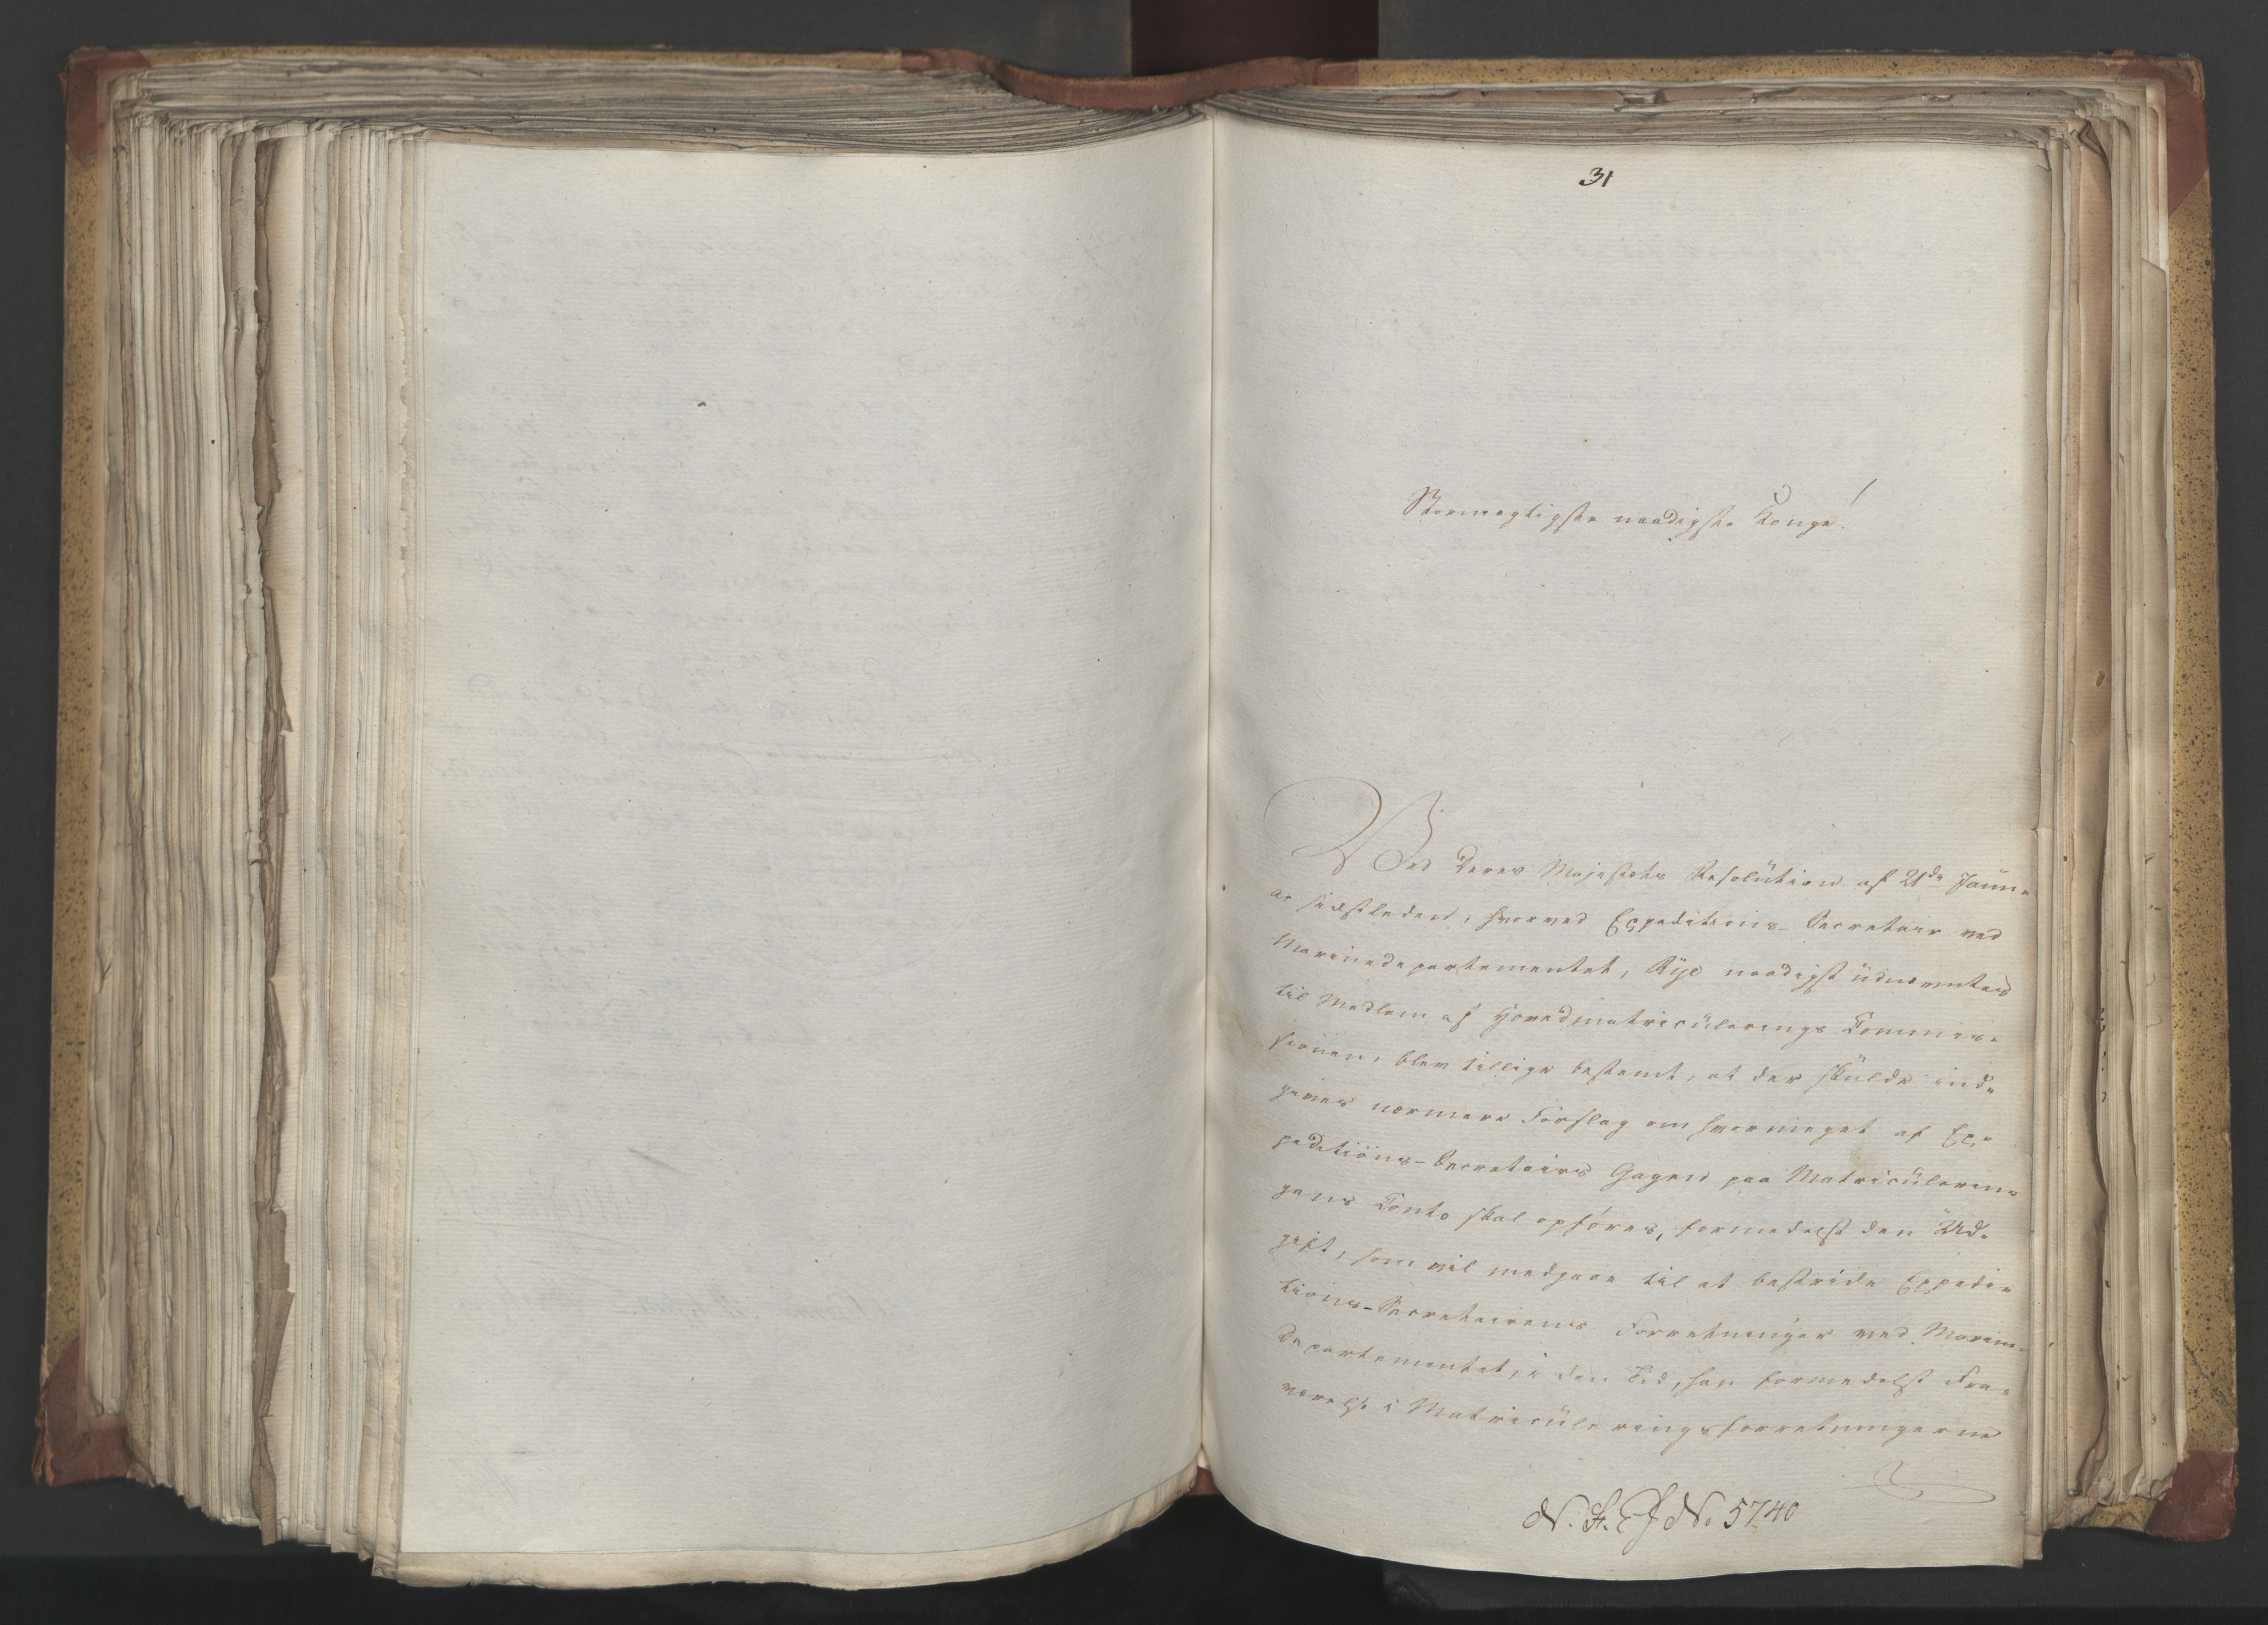 31
Stormægtigste naadigste Konge!
Ved Deres Majestæts Resolution af 21de Janu-
ar sidstleden, hvorved Expeditions-Secretair ved
Marinedepartementet, Rye naadigst udnævntes
til Medlem af Hovedmatriculerings Commis-
sionen, blev tillige bestemt, at der skulde ind-
gives nærmere Forslag om hvormeget af Ex-
peditions-Secretairs Gagen paa Matriculerin-
gens Conto skal opføres, formedelst den Ud-
gift, som vil medgaae til at bestride Expedi-
tions-Secretairens Forretninger ved Marine-
Departementet, i den Tid, han formedelst Fra-
værelse i Matriculeringsforretningerne
No 5740